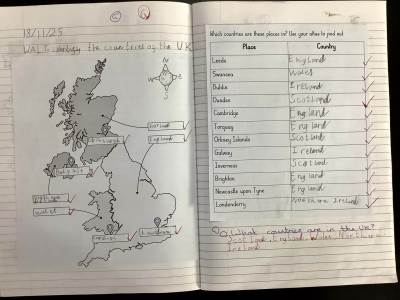 18/11/25
WALT: identify the countries of the UK
N
W
E
S
Scotland
England
Edinburgh
Belfast
Wales
Cardiff
London
Which countries are these places in? Use your atlas to find out.
Place Country
Leeds England
Swansea Wales
Dublin Ireland
Dundee Scotland
Cambridge England
Torquay England
Orkney Islands Scotland
Galway Ireland
Inverness Scotland
Brighton England
Newcastle upon Tyne England
Londonderry Northern Ireland
Q What countries are in the UK?
Scotland, England, Wales, Northern
Ireland